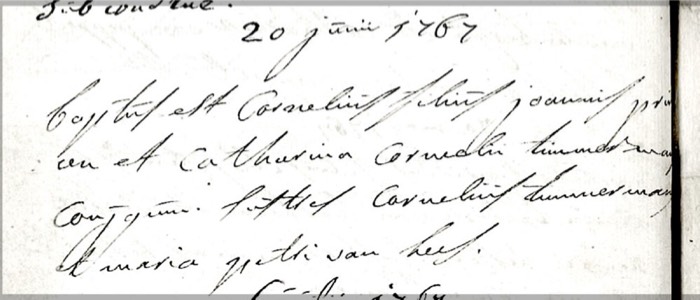 sub conditione.
20 junii 1767
baptus est Cornelius filius joannis pri
en et Catharina Cornelii timmerman
conjugum. sustes Cornelius timmerman
et maria petri van hees.
1767